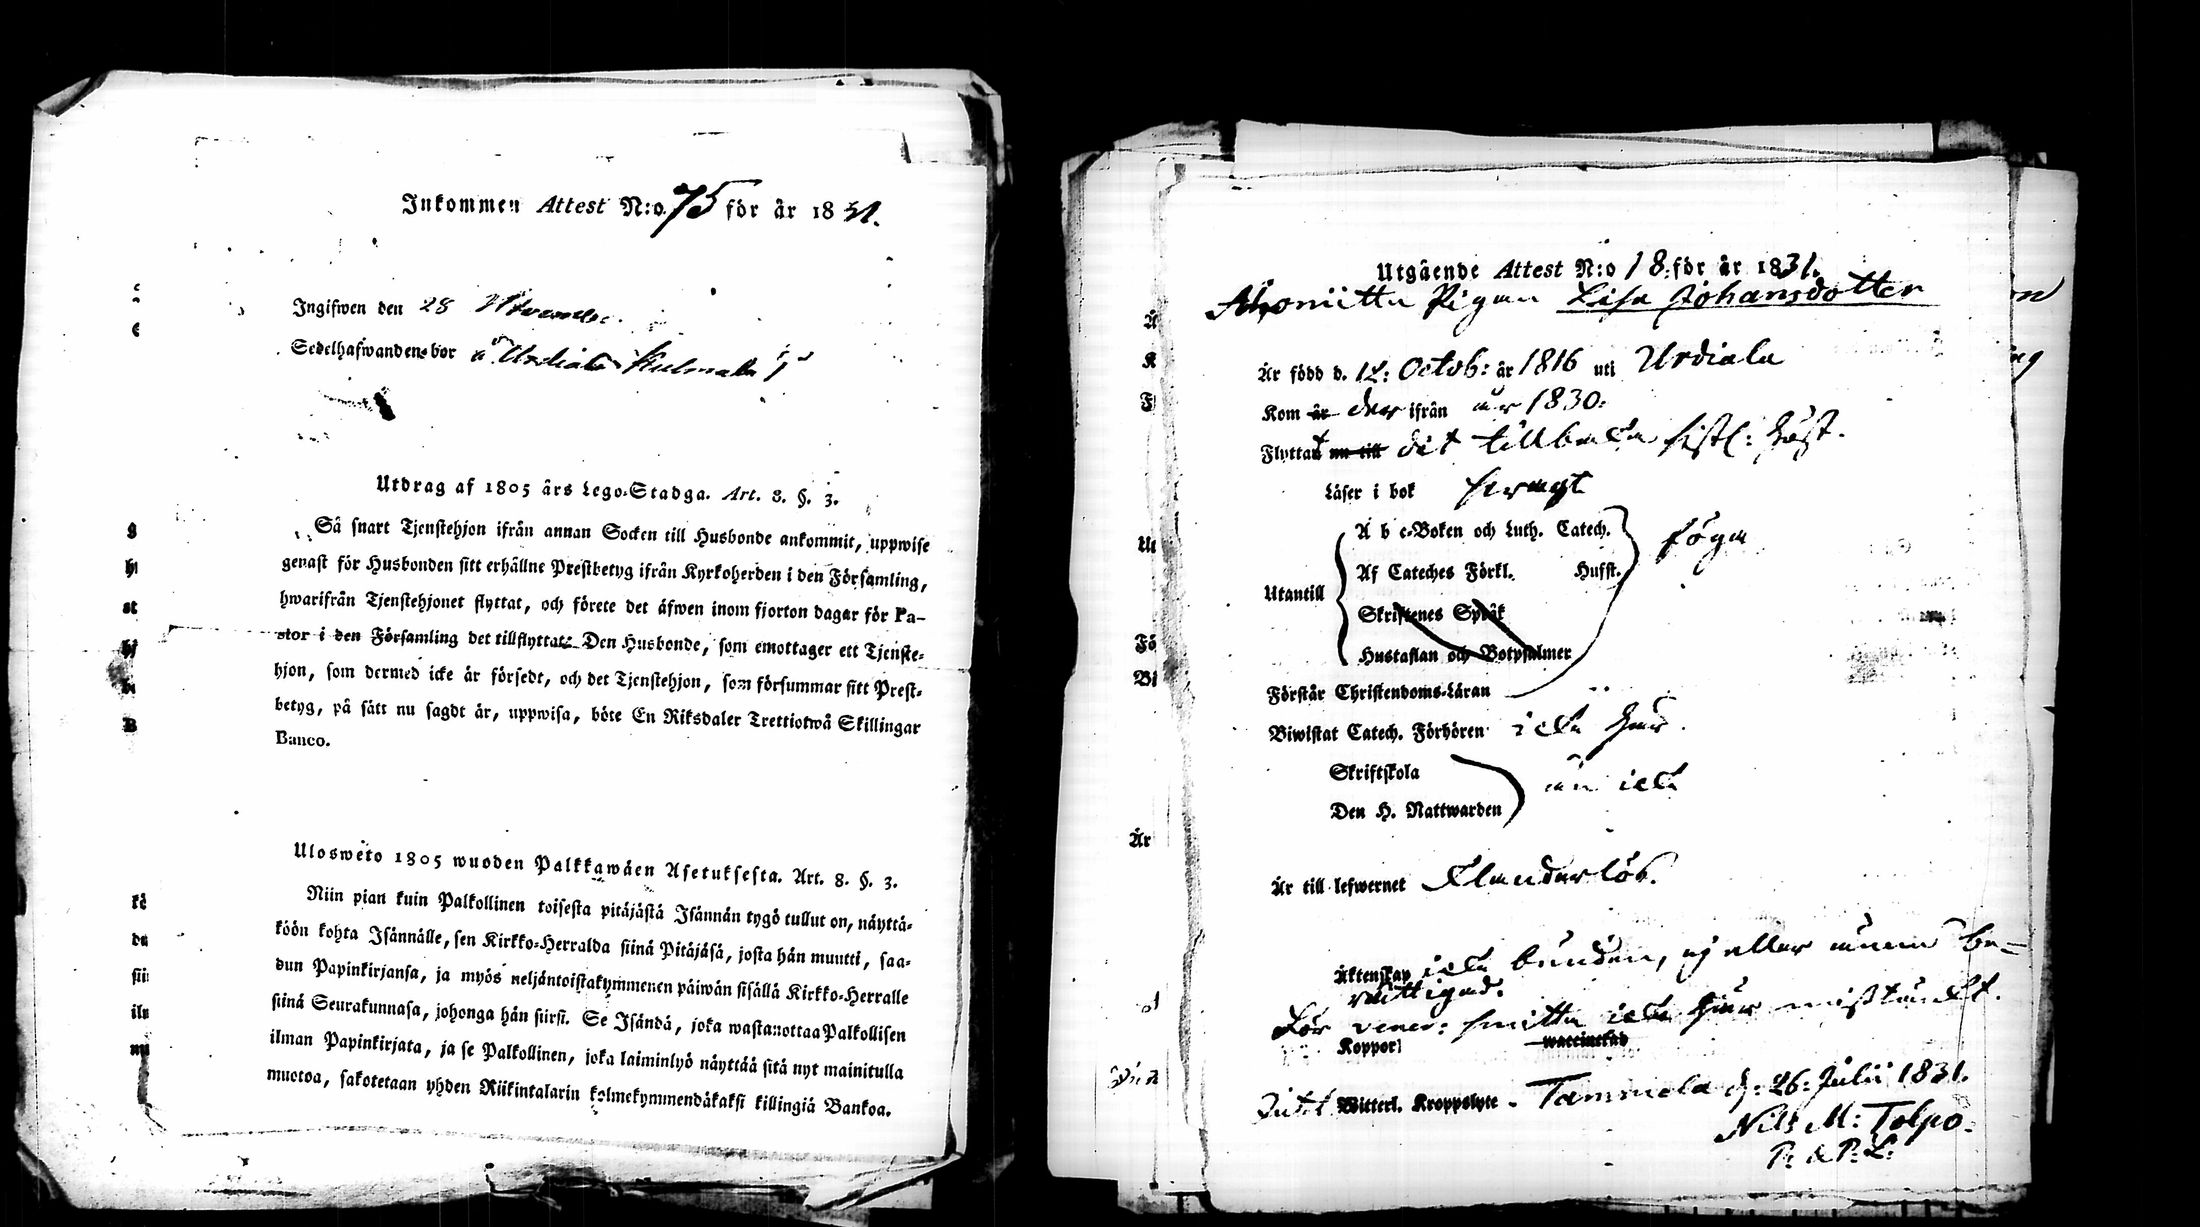 Inkommen Attest N:o 75 för år 1831.
Ingifwen den 28 November
Sedelhafwanden bor å Urdiala Kulmala
Utdrag af 1805 års Lego-Stadga. Art. 8. §. 3.
Så snart Tjenstehjon ifrån annan Socken till Husbonde ankommit, uppwise
genast för Husbonden sitt erhållne Prestbetyg ifrån Kyrkoherden i den Församling,
hwarifrån Tjenstehjonet flyttat, och förete det äfwen inom fjorton dagar för Pa-
stor i den Församling det tillflyttat. Den Husbonde, som emottager ett Tjenste-
hjon, som dermed icke är försedt, och det Tjenstehjon, som försummar sitt Prest-
betyg, på sätt nu sagdt är, uppwisa, böte En Riksdaler Trettiotwå Skillingar
Banco.
Uloswéto 1805 wuoden Palkkawäen Asetuksesta. Art. 8. §. 3.
Niin pian kuin Palkollinen toisesta pitäjästä Isännän tygö tullut on, näyttä-
köön kohta Isännälle, sen Kirkko-Herralda siinä Pitäjäsä, josta hän muutti, saa-
dun Papinkirjansa, ja myös neljäntoistakymmenen päiwän sisällä Kirkko-Herralle
siinä Seurakunnasa, johonga hän siirsi. Se Isändä, joka wastanottaa Palkollisen
ilman Papinkirjata, ja se Palkollinen, joka laiminlyö näyttää sitä nyt mainitulla
muotoa, sakotetaan yhden Riikintalarin kolmekymmendäkaksi killingiä Bankoa.
Utgående Attest N:o 18 för år 1831.
Pigan Lisa Johansdotter
Är född d. 12: Octob: år 1816 uti Urdiala
Kom år der ifrån år 1830:
Flyttat nu till dit tillbaka sistl: höst.
Läser i bok swagt
A b c-Boken och Luth. Catech.
föga
Af Cateches Förkl. Husst.
Utantill
Skriftenes Språk
Hustaflan och Botpsalmer
Förstår Christendoms-Läran
Biwistat Catech. Förhören icke har.
Skriftskola
än icke
Den H. Nattwarden
Är till lefwernet Klanderlös.
Äktenskap icke bunden, ej eller annan be-
rättigad.
För vener: smitta icke har misstänkt.
Koppor waccinerad
Witterl. Kroppslyte - Tammela d: 26: Julii 1831.
Nils M: Tolpo.
P: & P: L: